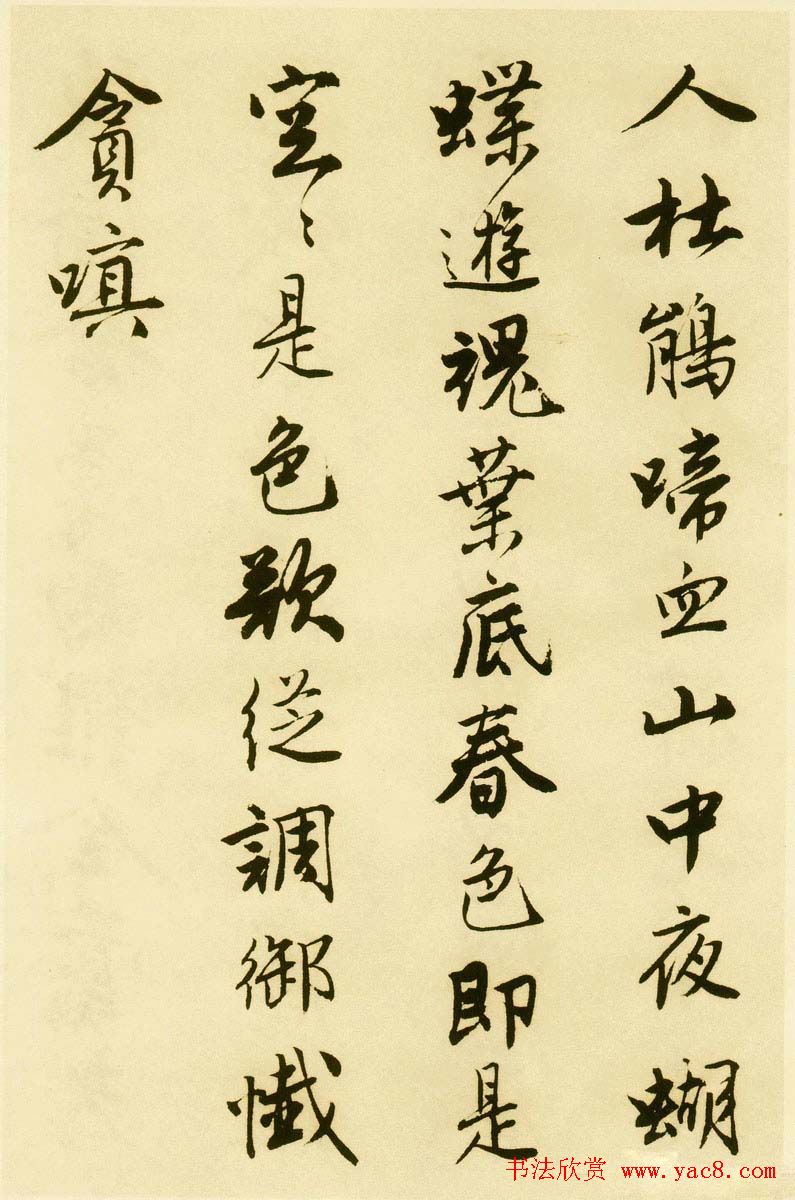 人杜鵑啼血山中夜蝴
蝶遊魂葉底春色即是
空〻是色欲從調御懺
貪嗔
书法欣赏 www.yac8.com